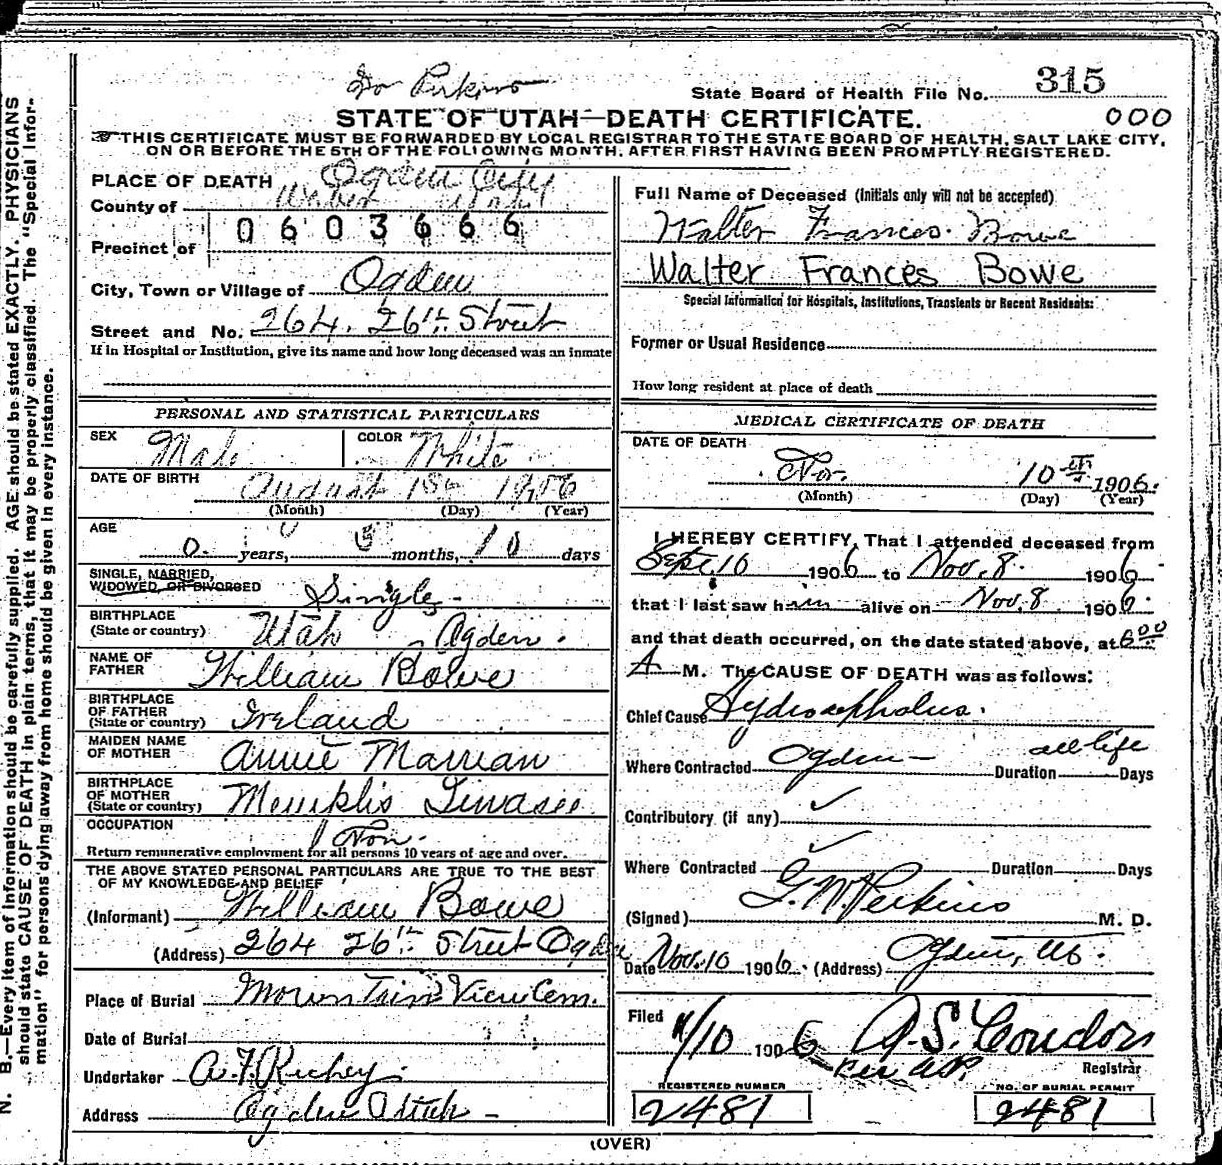 Dr Perkins
State Board of Health File No. 315
000
STATE OF UTAH—DEATH CERTIFICATE.
THIS CERTIFICATE MUST BE FORWARDED BY LOCAL REGISTRAR TO THE STATE BOARD OF HEALTH, SALT LAKE CITY,
ON OR BEFORE THE 5TH OF THE FOLLOWING MONTH, AFTER FIRST HAVING BEEN PROMPTLY REGISTERED.
PLACE OF DEATH Ogden City
County of Weber
0603666
Precinct of
City, Town or Village of Ogden
Street and No. 264. 26th Street
If in Hospital or Institution, give its name and how long deceased was an inmate
Full Name of Deceased (Initials only will not be accepted)
Walter Frances Bowe
Walter Frances Bowe
Special Information for Hospitals, Institutions, Transients or Recent Residents:
Former or Usual Residence
How long resident at place of death
PERSONAL AND STATISTICAL PARTICULARS
SEX Male COLOR White
DATE OF BIRTH August 1st 1906
(Month) (Day) (Year)
AGE 0 years, 3 months, 10 days
SINGLE, MARRIED,
WIDOWED, OR DIVORCED Single
BIRTHPLACE
(State or country) Utah Ogden.
NAME OF
FATHER William Bowe
BIRTHPLACE
OF FATHER
(State or country) Ireland
MAIDEN NAME
OF MOTHER Annie Marrian
BIRTHPLACE
OF MOTHER
(State or country) Memphis Tinasee
OCCUPATION Non.
Return remunerative employment for all persons 10 years of age and over.
THE ABOVE STATED PERSONAL PARTICULARS ARE TRUE TO THE BEST
OF MY KNOWLEDGE AND BELIEF
(Informant) William Bowe
(Address) 264 26th Street Ogden
Place of Burial Mountain View Cem.
Date of Burial
Undertaker A. F. Richey
Address Ogden Utah
MEDICAL CERTIFICATE OF DEATH
DATE OF DEATH
Nov. 10th 1906.
(Month) (Day) (Year)
I HEREBY CERTIFY, That I attended deceased from
Sept. 10 1906 to Nov. 8. 1906
that I last saw him alive on Nov. 8 1906.
and that death occurred, on the date stated above, at 6 00
A M. The CAUSE OF DEATH was as follows:
Chief Cause Hydrocephalus.
Where Contracted Ogden Duration all life Days
Contributory (if any)
Where Contracted Duration Days
(Signed) G. W. Perkins M. D.
Date Nov. 10 1906. (Address) Ogden, Ut.
Filed 11/10 1906 A. S. Condon
Per A.P. Registrar
REGISTERED NUMBER
2481
NO. OF BURIAL PERMIT
2481
(OVER)
N. B.—Every item of information should be carefully supplied. AGE should be stated EXACTLY. PHYSICIANS
should state CAUSE OF DEATH in plain terms, that it may be properly classified. The "Special Infor-
mation" for persons dying away from home should be given in every instance.